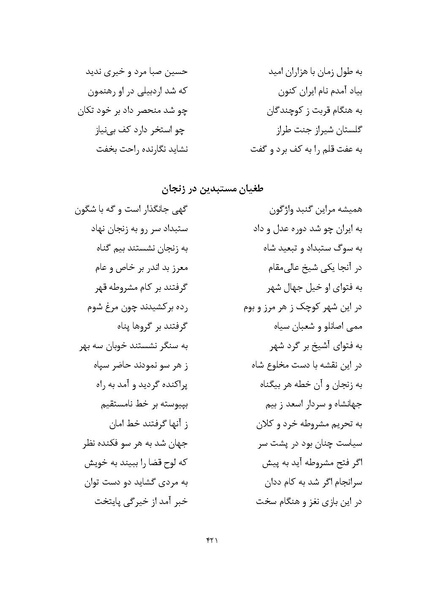 به طول زمان با هزاران امید حسین صبا مرد و خیری ندید
بیاد آمدم نام ایران کنون که شد اردبیلی در او رهنمون
به هنگام قربت ز کوچندگان چو شد منحصر داد بر خود تکان
گلستان شیراز جنت طراز چو استخر دارد کف بی‌نیاز
به عفت قلم را به کف برد و گفت نشاید نگارنده راحت بخفت
طغیان مستبدین در زنجان
همیشه مراین گنبد واژگون گهی جانگذار است و گه با شگون
به ایران چو شد دوره عدل و داد ستبداد سر رو به زنجان نهاد
به سوگ ستبداد و تبعید شاه به زنجان نشستند بیم گناه
در آنجا یکی شیخ عالی‌مقام معرز بد اندر بر خاص و عام
به فتوای او خیل جهال شهر گرفتند بر کام مشروطه قهر
در این شهر کوچک ز هر مرز و بوم رده برکشیدند چون مرغ شوم
ممی اصانلو و شعبان سیاه گرفتند بر گروها پناه
به فتوای آشیخ بر گرد شهر به سنگر نشستند خوبان سه بهر
در این نقشه با دست مخلوع شاه ز هر سو نمودند حاضر سپاه
به زنجان و آن خطه هر بیگناه پراکنده گردید و آمد به راه
جهانشاه و سردار اسعد ز بیم بپیوسته بر خط نامستقیم
به تحریم مشروطه خرد و کلان ز آنها گرفتند خط امان
سیاست چنان بود در پشت سر جهان شد به هر سو فکنده نظر
اگر فتح مشروطه آید به پیش که لوح قضا را ببیند به خویش
سرانجام اگر شد به کام ددان به مردی گشاید دو دست توان
در این بازی نغز و هنگام سخت خبر آمد از خیرگی پایتخت
۴۲۱